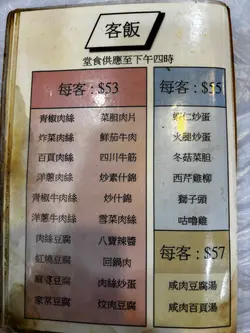 客飯
堂食供應至下午四時
每客 : $53
青椒肉絲 菜胆肉片
炸菜肉絲 鮮茄牛肉
百頁肉絲 四川牛筋
洋蔥肉絲 炒素什錦
青椒牛肉絲 炒什錦
洋蔥牛肉絲 雪菜肉絲
肉絲豆腐 八寶辣醬
紅燒豆腐 回鍋肉
麻婆豆腐 肉絲炒蛋
家常豆腐 炆肉豆腐
每客 : $55
蝦仁炒蛋
火腿炒蛋
冬菇菜胆
西芹雞柳
獅子頭
咕嚕雞
每客 : $57
咸肉豆腐湯
咸肉百頁湯